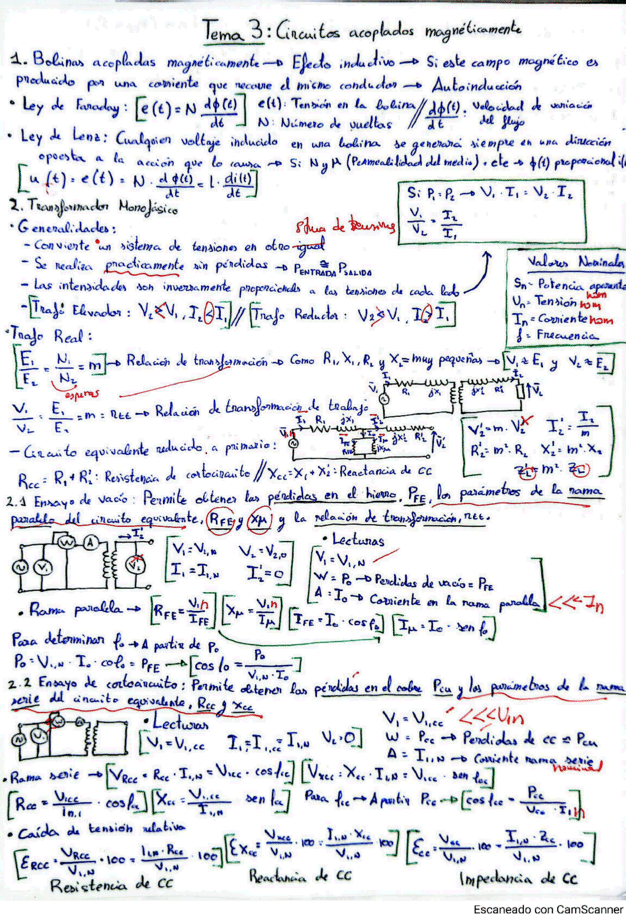 Tema 3: Circuitos acoplados magnéticamente
1. Bobinas acopladas magnéticamente → Efecto inductivo → Si este campo magnético es
producido por una corriente que recorre el mismo conductor → Autoinducción
• Ley de Faraday: [e(t) = N dϕ(t)/dt] e(t): Tensión en la bobina // dϕ(t)/dt: Velocidad de variación del flujo
N: Número de vueltas
• Ley de Lenz: Cualquier voltaje inducido en una bobina se generará siempre en una dirección
opuesta a la acción que lo causa → Si N y μ (Permeabilidad del medio) = cte → ϕ(t) proporcional i(
[u(t) = e(t) = N · dϕ(t)/dt = L · di(t)/dt]
Si P₁ = P₂ → V₁ · I₁ = V₂ · I₂
V₁/V₂ = I₂/I₁
2. Transformador Monofásico
• Generalidades:
- Convierte un sistema de tensiones en otro igual
- Se realiza prácticamente sin pérdidas → P ENTRADA ≅ P SALIDA
- Las intensidades son inversamente proporcionales a las tensiones de cada lado
- [Trafo Elevador: V₂ < V₁, I₂ < I₁] // [Trafo Reductor: V₂ < V₁, I₂ > I₁]
Valores Nominales
Sn = Potencia aparente
Un = Tensión nom
In = Corriente nom
f = Frecuencia
• Trafo Real:
[E₁/E₂ = N₁/N₂ = m] → Relación de transformación → Como R₁, X₁, R₂ y X₂ = muy pequeñas → [V₁ ≅ E₁ y V₂ ≅ E₂]
espiras
V₁/V₂ = E₁/E₂ = m = rtt → Relación de transformación de trabajo
- Circuito equivalente reducido a primario:
V₂' = m · V₂ I₂' = I₂/m
R₂' = m² · R₂ X₂' = m² · X₂
Z₂' = m² · Z₂
Rcc = R₁ + R₂': Resistencia de cortocircuito // Xcc = X₁ + X₂': Reactancia de CC
2.1 Ensayo de vacío: Permite obtener las pérdidas en el hierro, PFE, los parámetros de la rama
paralelo del circuito equivalente, RFE y Xμ y la relación de transformación, rtt.
V₁ = V₁,N V₂ = V₂,0
I₁ = I₁,N I₂' = 0
• Lecturas
V₁ = V₁,N
W = P₀ → Perdidas de vacío = PFE
A = I₀ → Corriente en la rama paralela <<< In
• Rama paralela → [RFE = V₁n/IFE] [Xμ = V₁n/Iμ] [IFE = I₀ · cosφ₀] [Iμ = I₀ · senφ₀]
Para determinar φ₀ → A partir de P₀
P₀ = V₁,N · I₀ · cosφ₀ = PFE → [cosφ₀ = P₀/(V₁,N · I₀)]
2.2 Ensayo de cortocircuito: Permite obtener las pérdidas en el cobre Pcu y los parámetros de la rama
serie del circuito equivalente, Rcc y Xcc
• Lecturas
[V₁ = V₁,cc I₁ = I₁,cc = I₁,N V₂ = 0]
V₁ = V₁,cc <<< U₁n
W = Pcc → Perdidas de CC ≅ Pcu
A = I₁,N → Corriente rama serie
nominal
• Rama serie → [VRcc = Rcc · I₁,N = V₁cc · cosφcc] [VXcc = Xcc · I₁,N = V₁cc · senφcc]
[Rcc = V₁cc/In,1 · cosφcc] [Xcc = V₁,cc/I₁,N senφcc] Para φcc → A partir Pcc → [cosφcc = Pcc/(Vcc · I₁n)]
• Caída de tensión relativa
[εRcc = VRcc/V₁,N · 100 = I₁,N · Rcc/V₁,N · 100] [εXcc = VXcc/V₁,N · 100 = I₁,N · Xcc/V₁,N · 100] [εcc = Vcc/V₁,N · 100 = I₁,N · Zcc/V₁,N · 100]
Resistencia de CC Reactancia de CC Impedancia de CC
Escaneado con CamScanner